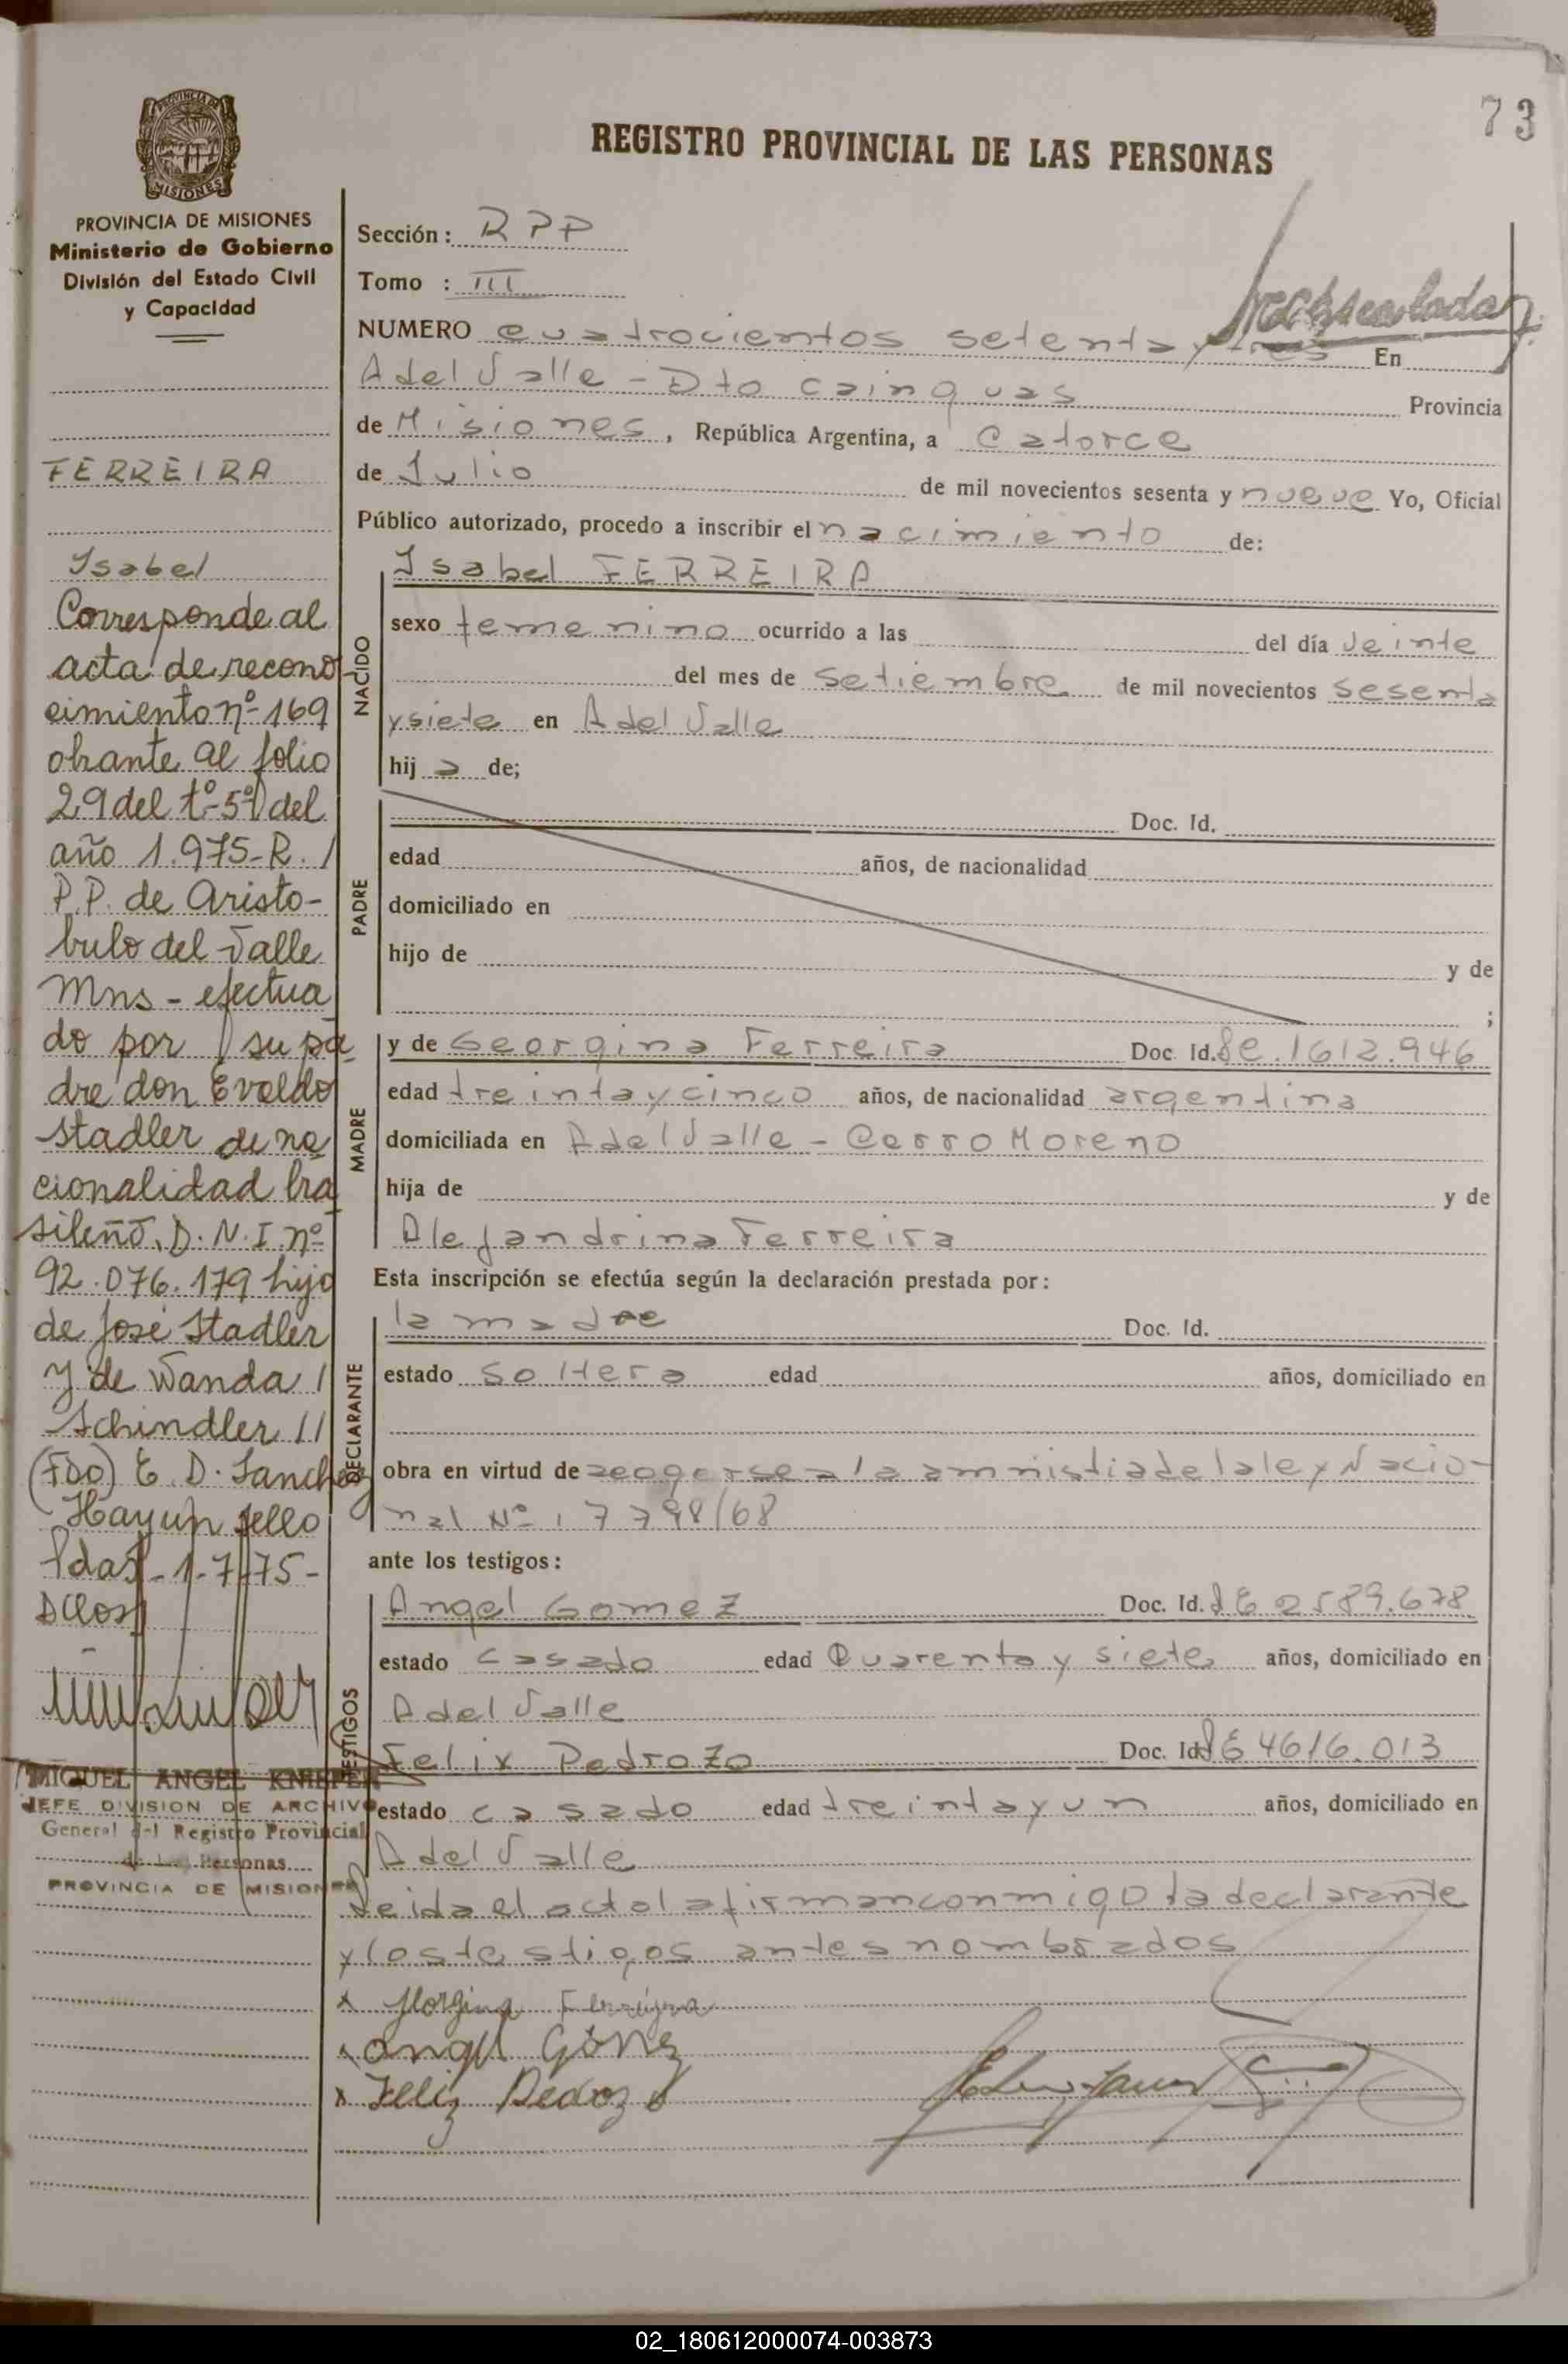 73
REGISTRO PROVINCIAL DE LAS PERSONAS
PROVINCIA DE MISIONES
PROVINCIA DE MISIONES
Ministerio de Gobierno
División del Estado Civil
y Capacidad
FERREIRA
Isabel
Corresponde al
acta de recono
cimiento nº 169
obrante al folio
29 del tº 5º del
año 1.975-R. /
P.P. de Aristo-
bulo del Valle
Mns - efectua
do por su pa
dre don Evaldo
Stadler de na
cionalidad bra
sileño, D.N.I. nº
92.076.179 hijo
de José Stadler
y de Wanda /
Schindler //
(FDO) E. D. Sanchez
Hay un sello
Pdas - 1-7-75-
MIGUEL ANGEL
JEFE DIVISION DE ARCHIVO
General del Registro Provincial
de Las Personas
PROVINCIA DE MISIONES
Sección: RPP
Tomo : III
NUMERO cuatrocientos setenta y tres En
A del Valle - Dto Cainguas Provincia
de Misiones, República Argentina, a Catorce
de Julio de mil novecientos sesenta y nueve Yo, Oficial
Público autorizado, procedo a inscribir el nacimiento de:
NACIDO
Isabel FERREIRA
sexo femenino ocurrido a las del día veinte
del mes de Setiembre de mil novecientos sesenta
y siete en A del Valle
hij a de;
PADRE
Doc. Id.
edad años, de nacionalidad
domiciliado en
hijo de y de
;
MADRE
y de Georgina Ferreira Doc. Id. 1612.946
edad treinta y cinco años, de nacionalidad argentina
domiciliada en A del Valle - Cerro Moreno
hija de y de
Alejandrina Ferreira
Esta inscripción se efectúa según la declaración prestada por:
DECLARANTE
la madre Doc. Id.
estado soltera edad años, domiciliado en
obra en virtud de acogerse a la amnistia de la ley Nacio-
nal Nº 17798/68
ante los testigos:
TESTIGOS
Angel Gomez Doc. Id. 2589.678
estado casado edad Quarenta y siete años, domiciliado en
A del Valle
Felix Pedrozo Doc. Id. 4616.013
estado casado edad treinta y un años, domiciliado en
A del Valle
Leida el acta la firman conmigo la declarante
y los testigos antes nombrados
x
x Angel Gómez
x Feliz Pedozo
02_180612000074-003873